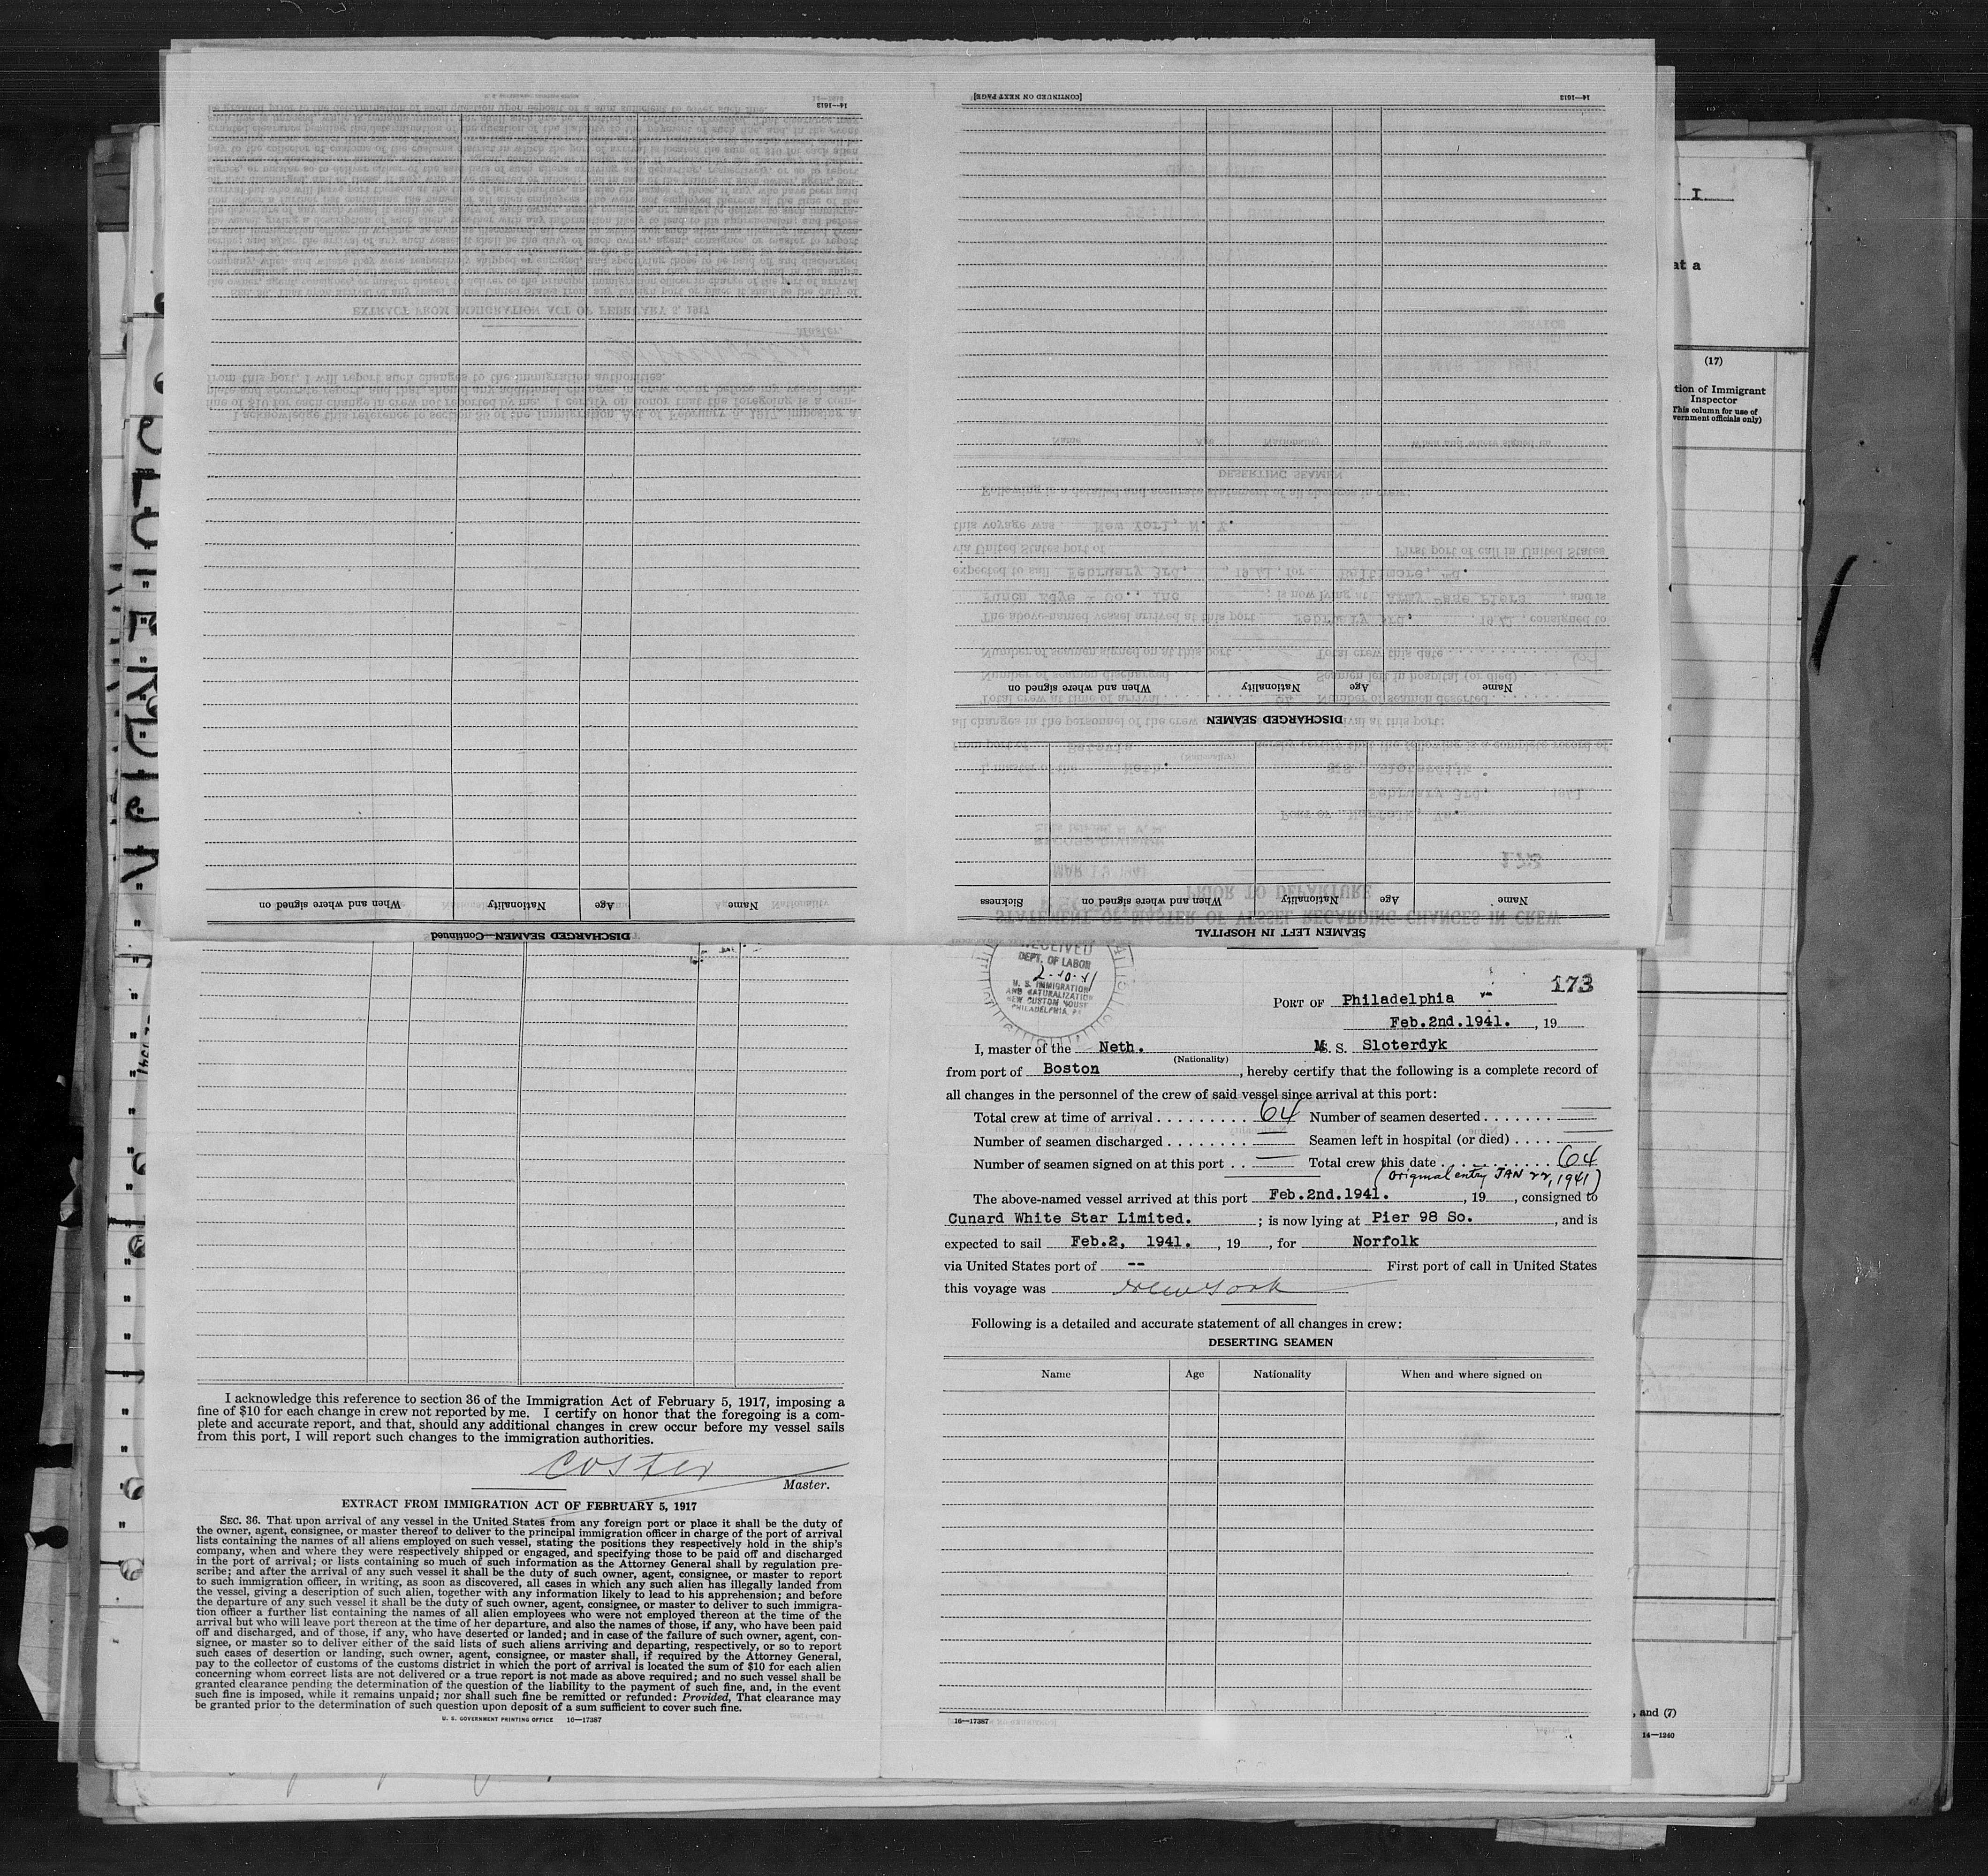 14—1613
DISCHARGED SEAMEN—Continued
Name
Age
Nationality
When and where signed on
SEAMEN LEFT IN HOSPITAL
Name
Age
Nationality
When and where signed on
Sickness
DISCHARGED SEAMEN
Name
Age
Nationality
When and where signed on
14—1613
[CONTINUED ON NEXT PAGE]
I
at a
(17)
tion of Immigrant
Inspector
This column for use of
vernment officials only)
, and (7)
14—1240
RECEIVED
DEPT. OF LABOR
2-10-41
U. S. IMMIGRATION
AND NATURALIZATION
NEW CUSTOM HOUSE
PHILADELPHIA, PA
173
PORT OF Philadelphia
Feb.2nd.1941. , 19
I, master of the Neth. M. S. Sloterdyk
(Nationality)
from port of Boston , hereby certify that the following is a complete record of
all changes in the personnel of the crew of said vessel since arrival at this port:
Total crew at time of arrival . . . . . . . . . . 64 Number of seamen deserted . . . . . . . —
Number of seamen discharged . . . . . . . . — Seamen left in hospital (or died) . . . . —
Number of seamen signed on at this port . . — Total crew this date . . . . . . . . . . . . 64
(Original entry JAN 22, 1941)
The above-named vessel arrived at this port Feb.2nd.1941. , 19 , consigned to
Cunard White Star Limited. ; is now lying at Pier 98 So. , and is
expected to sail Feb.2, 1941. , 19 , for Norfolk
via United States port of -- First port of call in United States
this voyage was New York
Following is a detailed and accurate statement of all changes in crew:
DESERTING SEAMEN
Name Age Nationality When and where signed on
16—17387
I acknowledge this reference to section 36 of the Immigration Act of February 5, 1917, imposing a
fine of $10 for each change in crew not reported by me. I certify on honor that the foregoing is a com-
plete and accurate report, and that, should any additional changes in crew occur before my vessel sails
from this port, I will report such changes to the immigration authorities.
Coster
Master.
EXTRACT FROM IMMIGRATION ACT OF FEBRUARY 5, 1917
SEC. 36. That upon arrival of any vessel in the United States from any foreign port or place it shall be the duty of
the owner, agent, consignee, or master thereof to deliver to the principal immigration officer in charge of the port of arrival
lists containing the names of all aliens employed on such vessel, stating the positions they respectively hold in the ship's
company, when and where they were respectively shipped or engaged, and specifying those to be paid off and discharged
in the port of arrival; or lists containing so much of such information as the Attorney General shall by regulation pre-
scribe; and after the arrival of any such vessel it shall be the duty of such owner, agent, consignee, or master to report
to such immigration officer, in writing, as soon as discovered, all cases in which any such alien has illegally landed from
the vessel, giving a description of such alien, together with any information likely to lead to his apprehension; and before
the departure of any such vessel it shall be the duty of such owner, agent, consignee, or master to deliver to such immigra-
tion officer a further list containing the names of all alien employees who were not employed thereon at the time of the
arrival but who will leave port thereon at the time of her departure, and also the names of those, if any, who have been paid
off and discharged, and of those, if any, who have deserted or landed; and in case of the failure of such owner, agent, con-
signee, or master so to deliver either of the said lists of such aliens arriving and departing, respectively, or so to report
such cases of desertion or landing, such owner, agent, consignee, or master shall, if required by the Attorney General,
pay to the collector of customs of the customs district in which the port of arrival is located the sum of $10 for each alien
concerning whom correct lists are not delivered or a true report is not made as above required; and no such vessel shall be
granted clearance pending the determination of the question of the liability to the payment of such fine, and, in the event
such fine is imposed, while it remains unpaid; nor shall such fine be remitted or refunded: Provided, That clearance may
be granted prior to the determination of such question upon deposit of a sum sufficient to cover such fine.
U. S. GOVERNMENT PRINTING OFFICE 16—17387